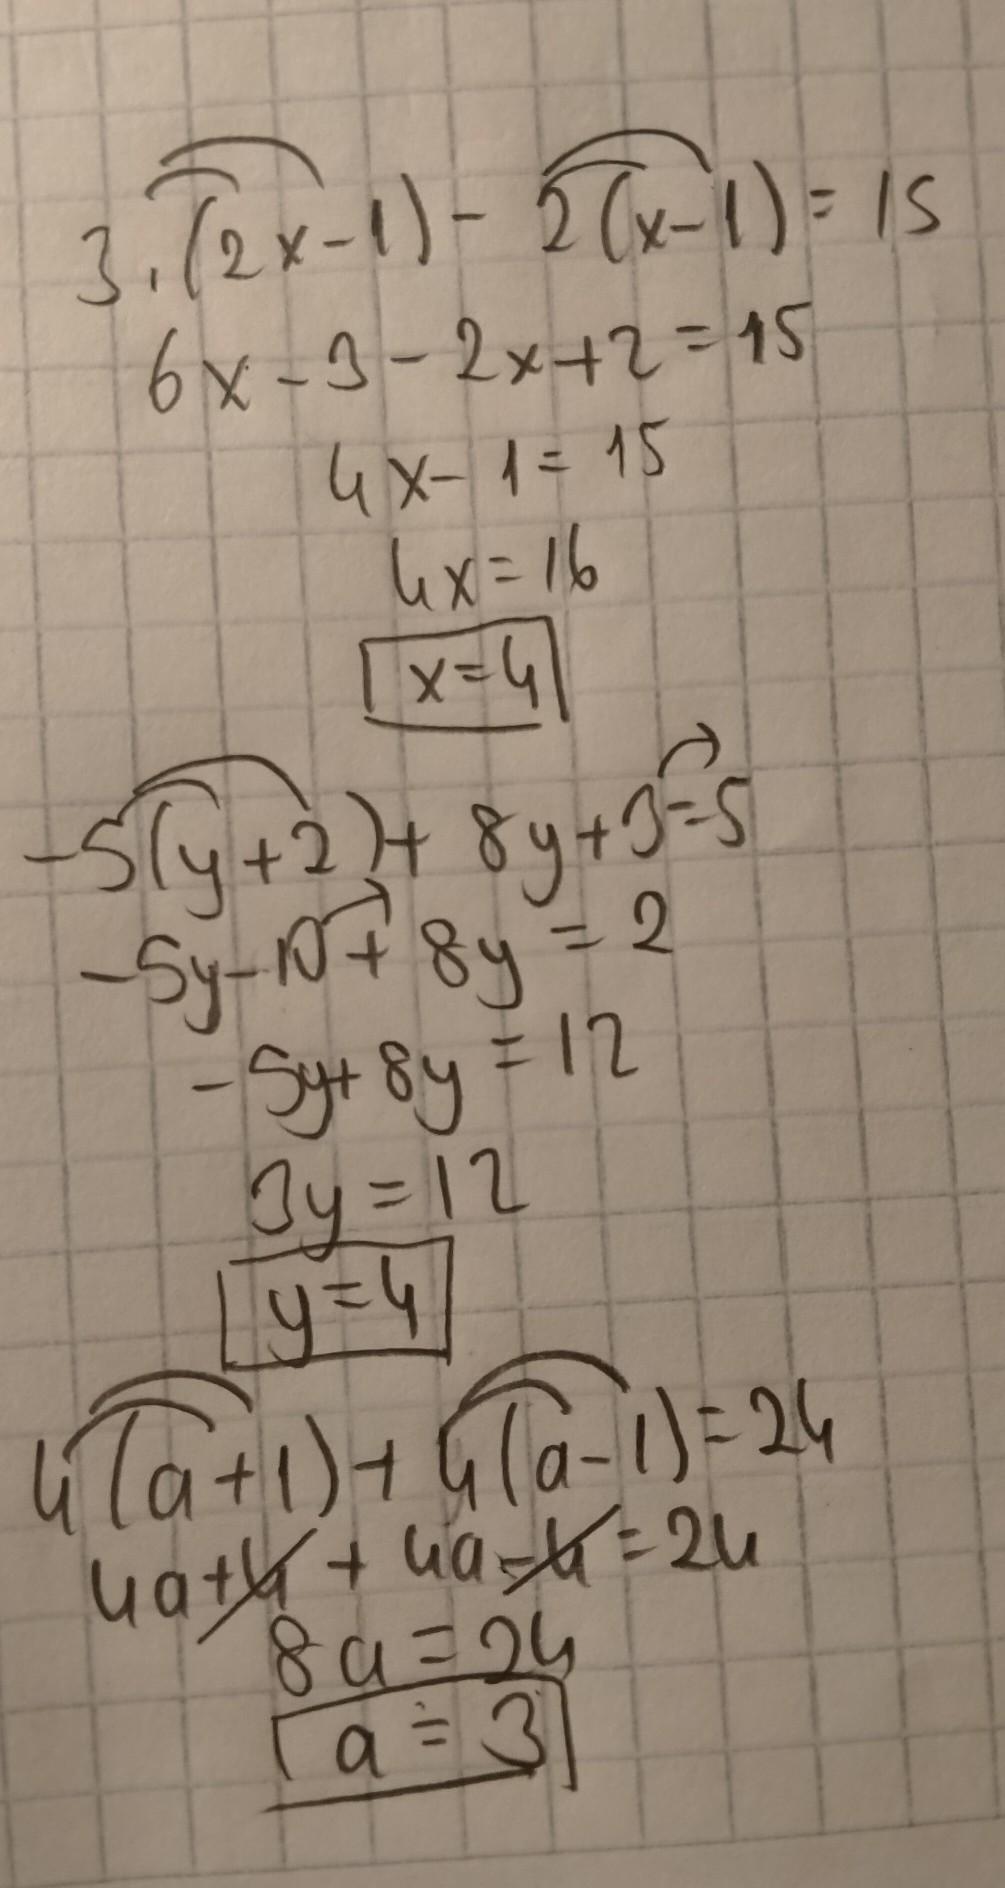 3.(2x-1)-2(x-1)=15
6x-3-2x+2=15
4x-1=15
4x=16
x=4
-5(y+2)+8y+3=5
-5y-10+8y=2
-5y+8y=12
3y=12
y=4
4(a+1)+4(a-1)=24
4a+4+4a-4=24
8a=24
a=3